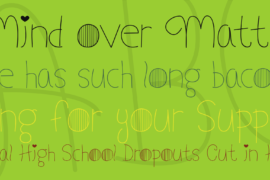 Mind over Matt
e has such long baco
ng for your Supp
a! High School Dropouts Cut in